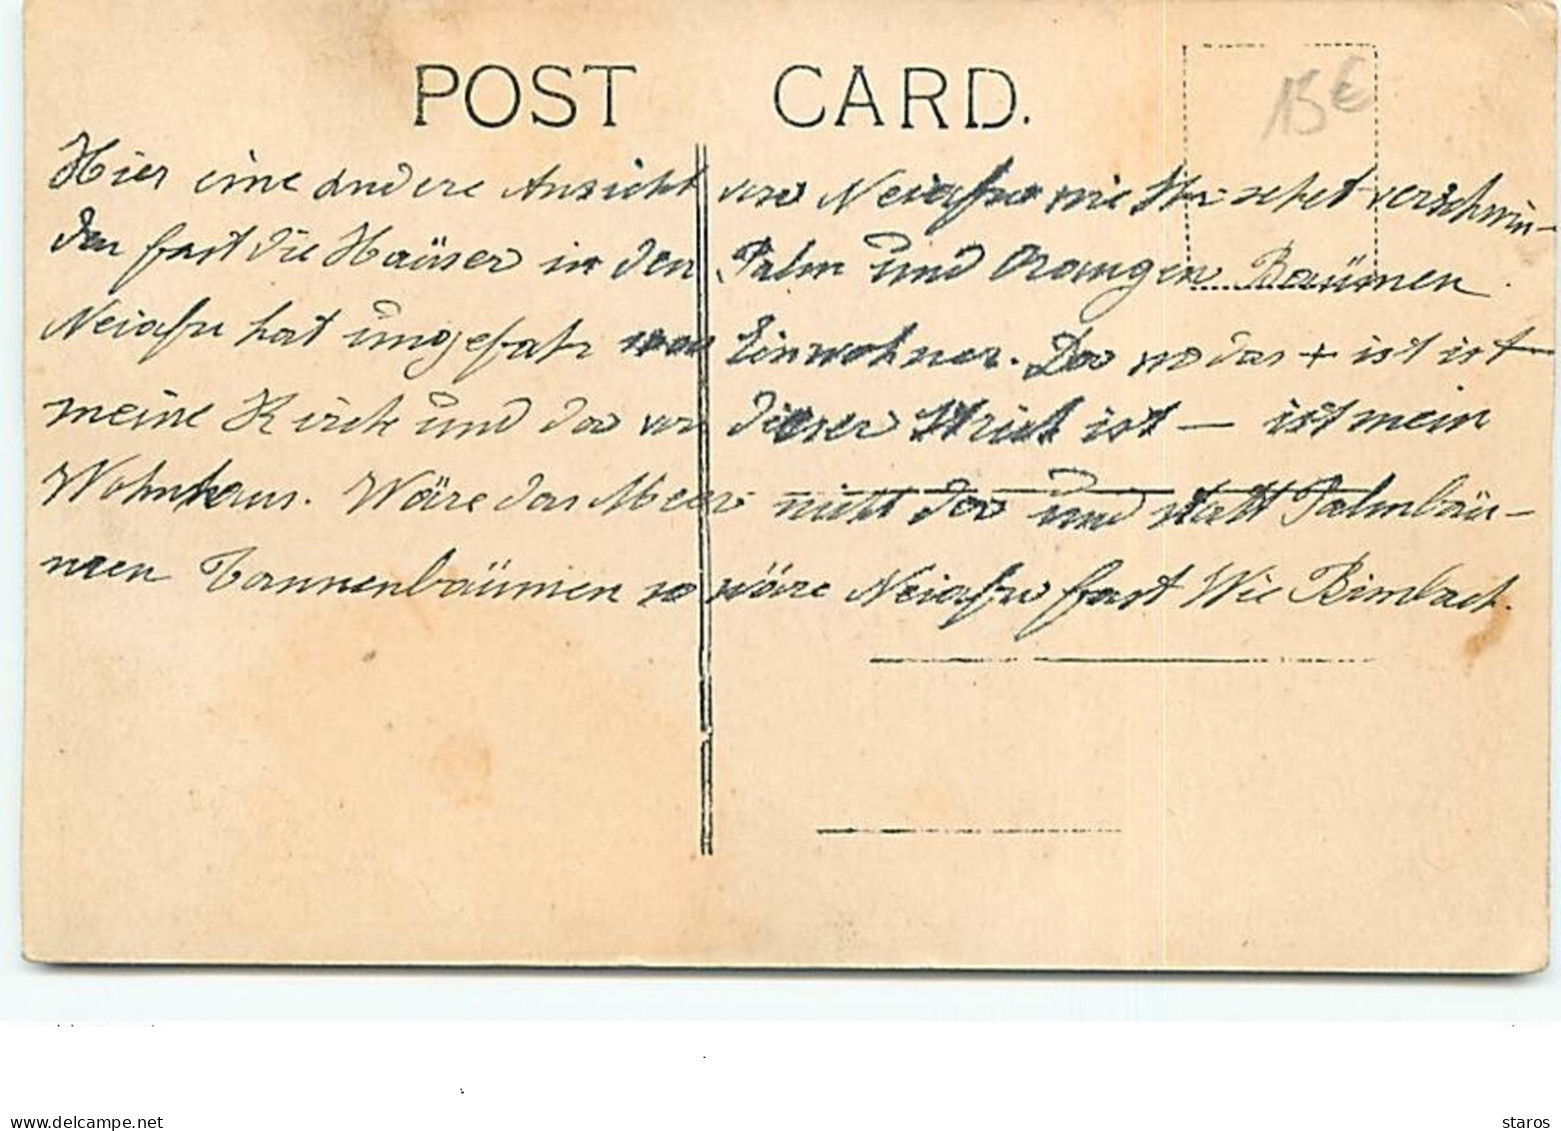 POST CARD.
15€
Hier eine andere Ansicht von Neiafu wie Ihr sehet verschwin-
den fast die Häuser in den Palm und Orangen Bäumen.
Neiafu hat ungefähr Einwohner. Da wo das + ist ist
meine Kirche und da wo dieser Strich ist — ist mein
Wohnhaus. Wäre das Meer nicht da und statt Palmbäu-
men Tannenbäumen so wäre Neiafu fast Wie Bimbach.
www.delcampe.net
staros